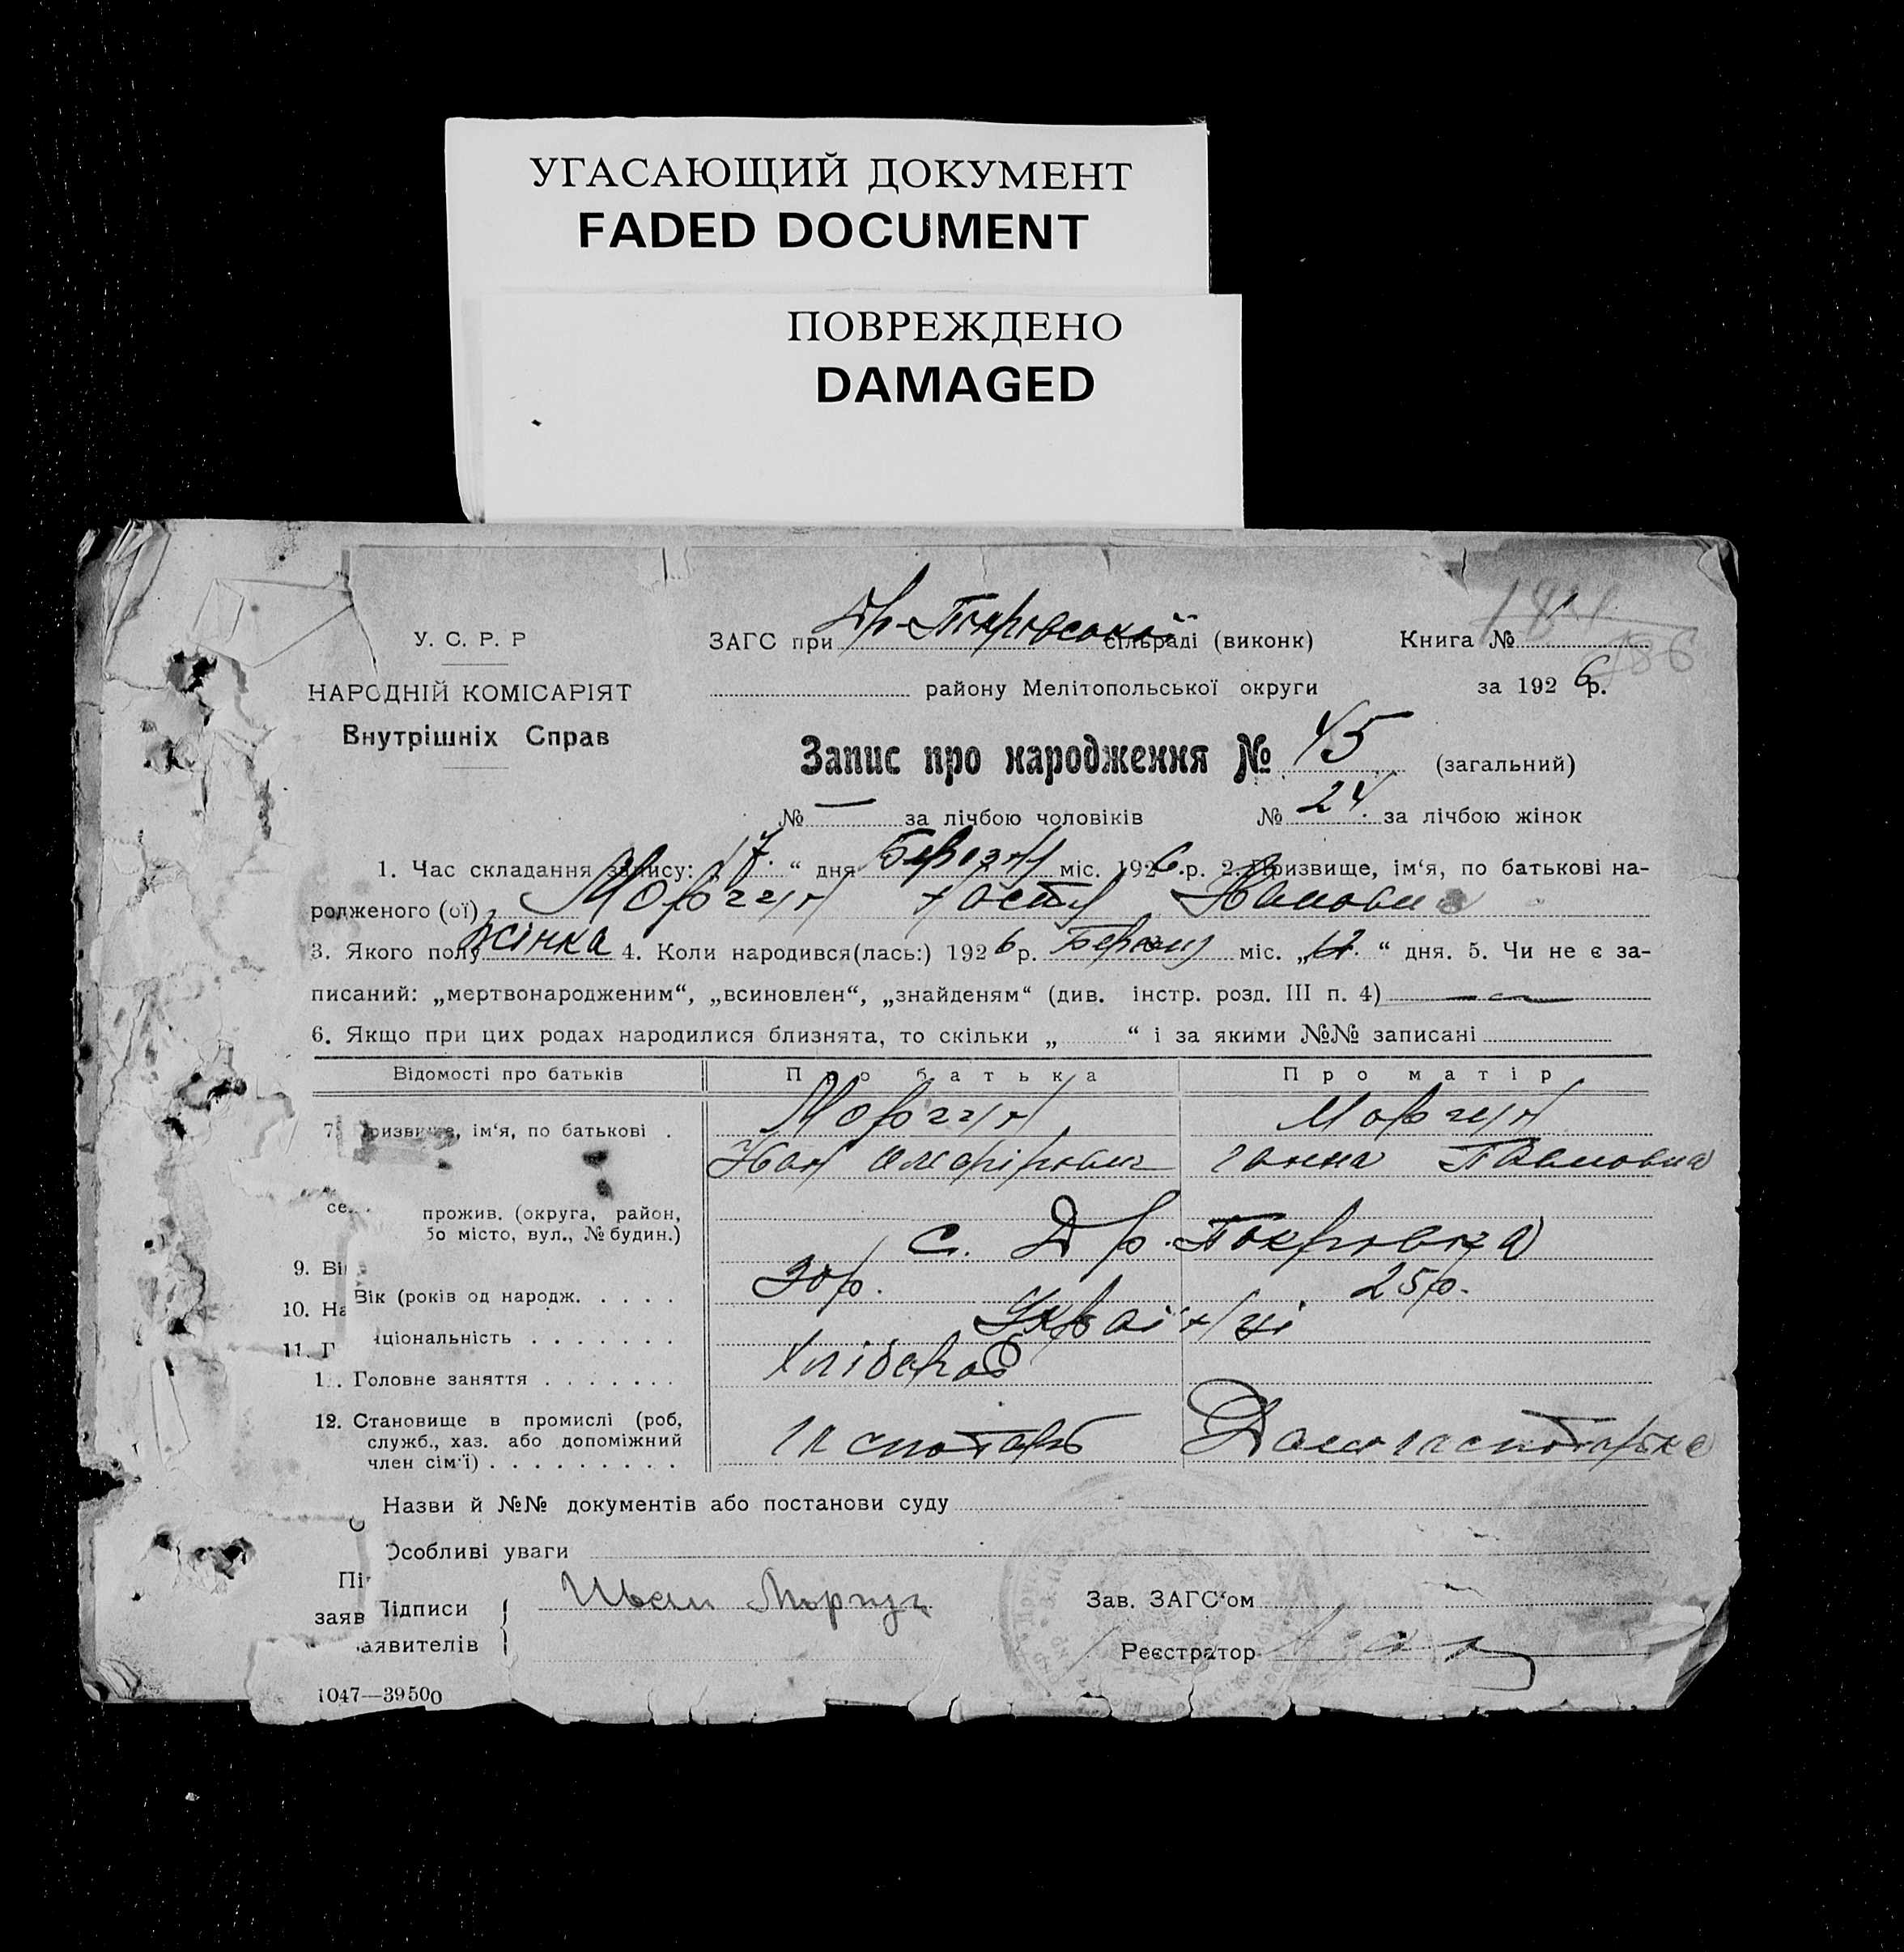 УГАСАЮЩИЙ ДОКУМЕНТ
FADED DOCUMENT
ПОВРЕЖДЕНО
DAMAGED
У. С. Р. Р
НАРОДНІЙ КОМІСАРІЯТ
Внутрішніх Справ
ЗАГС при Др-Покровській сільраді (виконк) Книга №
186
району Мелітопольської округи за 1926 р.
Запис про народження № 45 (загальний)
№ — за лічбою чоловіків № 24. за лічбою жінок
1. Час складання запису: 17. “ дня Березня міс. 1926 р. 2. Призвище, ім‘я, по батькові на-
родженого (ої) Моргун Настя Ивановна
3. Якого полу жінка 4. Коли народився(лась:) 1926 р. Березня міс. „12. “ дня. 5. Чи не є за-
писаний: „мертвонародженим“, „всиновлен“, „знайденям“ (див. інстр. розд. III п. 4)
6. Якщо при цих родах народилися близнята, то скільки „ “ і за якими №№ записані
Відомості про батьків Про батька Про матір
7. Призвище, ім‘я, по батькові . Моргун Моргун
Иван Ганна Павловна
прожив. (округа, район,
бо місто, вул., № будин.) с. Др. Покровка
9. Ві
Вік (років од народж. . . . . 30 р. 25 р.
10. На
ціональність . . . . . . . Українці
11. Г
1 . Головне заняття . . . . . . . Хлібороб
12. Становище в промислі (роб,
служб., хаз. або допоміжний
член сім‘ї) . . . . . . . . . господарь Домогосподарька
Назви й №№ документів або постанови суду
Особливі уваги
Пі
заяв Підписи
аявителів Иван Моргун
Зав. ЗАГС‘ом
Реєстратор
1047—39500